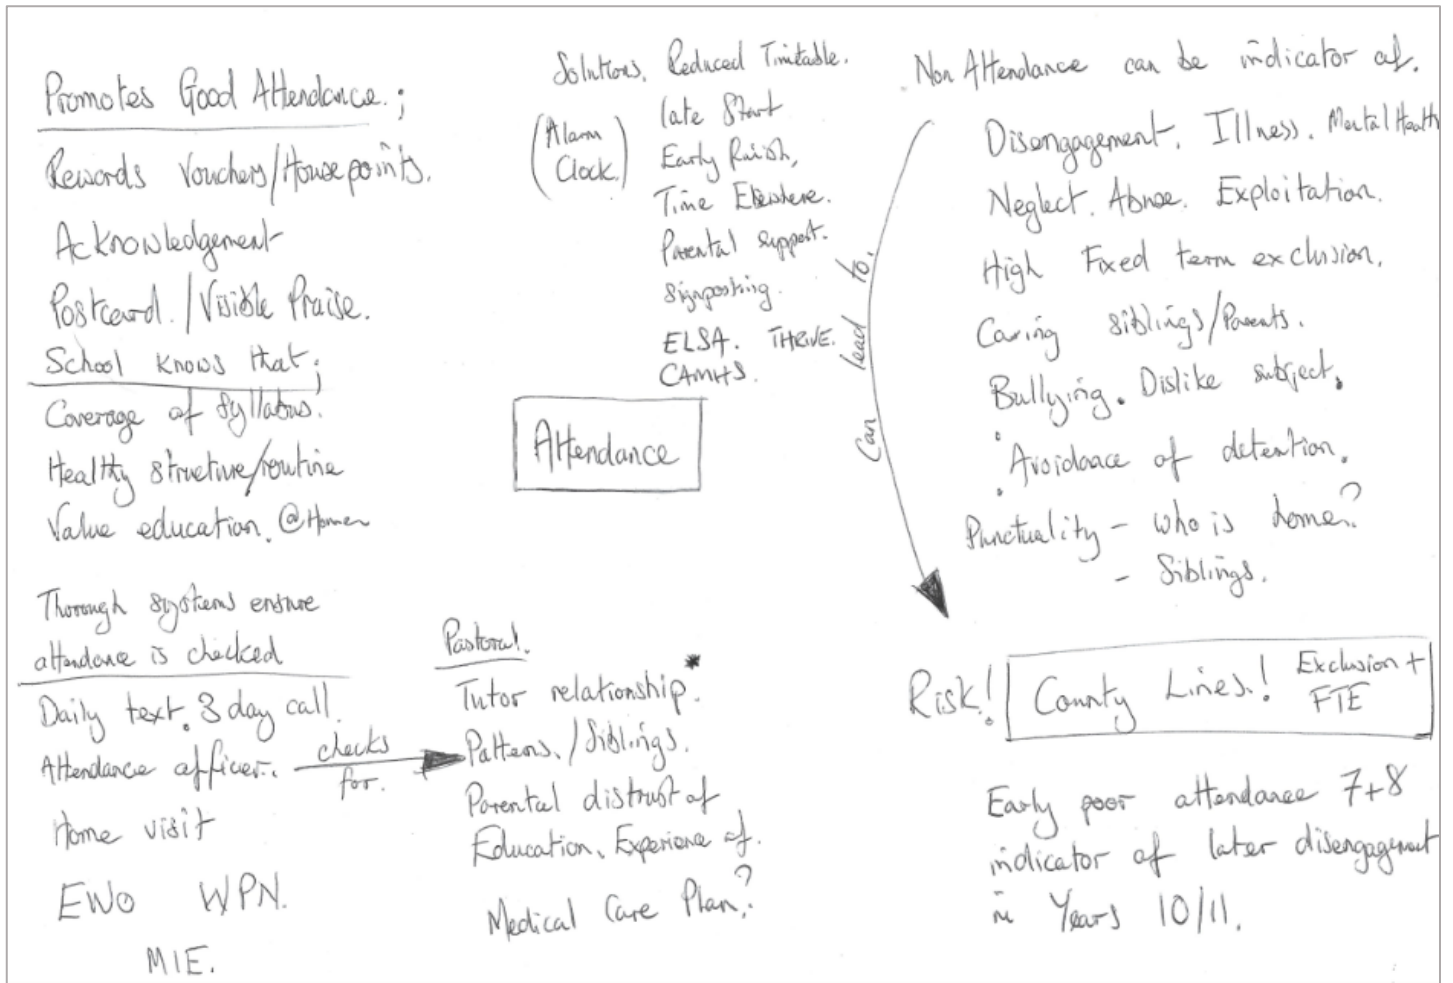 Promotes Good Attendance;
Rewards Vouchers/House points.
Acknowledgement
Postcard./Visible Praise.
School knows that;
Coverage of Syllabus.
Healthy structure/routine
Value education. @Home
Thorough systems ensure
attendance is checked
Daily text. 3 day call.
Attendance officer.
Home visit
EWO WPN.
MIE.
checks
for.
Solutions. Reduced Timetable.
(Alarm
Clock.)
late Start
Early Finish,
Time Elsewhere.
Parental support.
Signposting.
ELSA. THRIVE.
CAMHS.
Attendance
Pastoral.
Tutor relationship.*
Patterns./Siblings.
Parental distrust of
Education. Experience of.
Medical Care Plan?
Non Attendance can be indicator of.
Disengagement. Illness. Mental Health
Neglect. Abuse. Exploitation.
High Fixed term exclusion.
Caring siblings/Parents.
Bullying. Dislike subject.
Avoidance of detention.
Punctuality - who is home?
- Siblings.
Can lead to.
Risk! County Lines! Exclusion +
FTE
Early poor attendance 7+8
indicator of later disengagement
in Years 10/11.